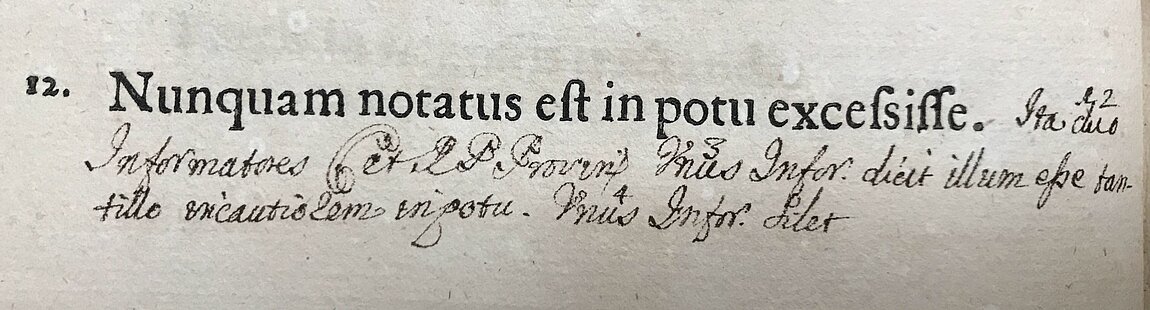 12. Nunquam notatus est in potu exceſsiſſe. Ita duo 1, 2
Informatores (et P P Provin) Vnus 3 Infor. dicit illum eſse tan-
tillo incautiorem in potu. Vnus 4 Infor. silet